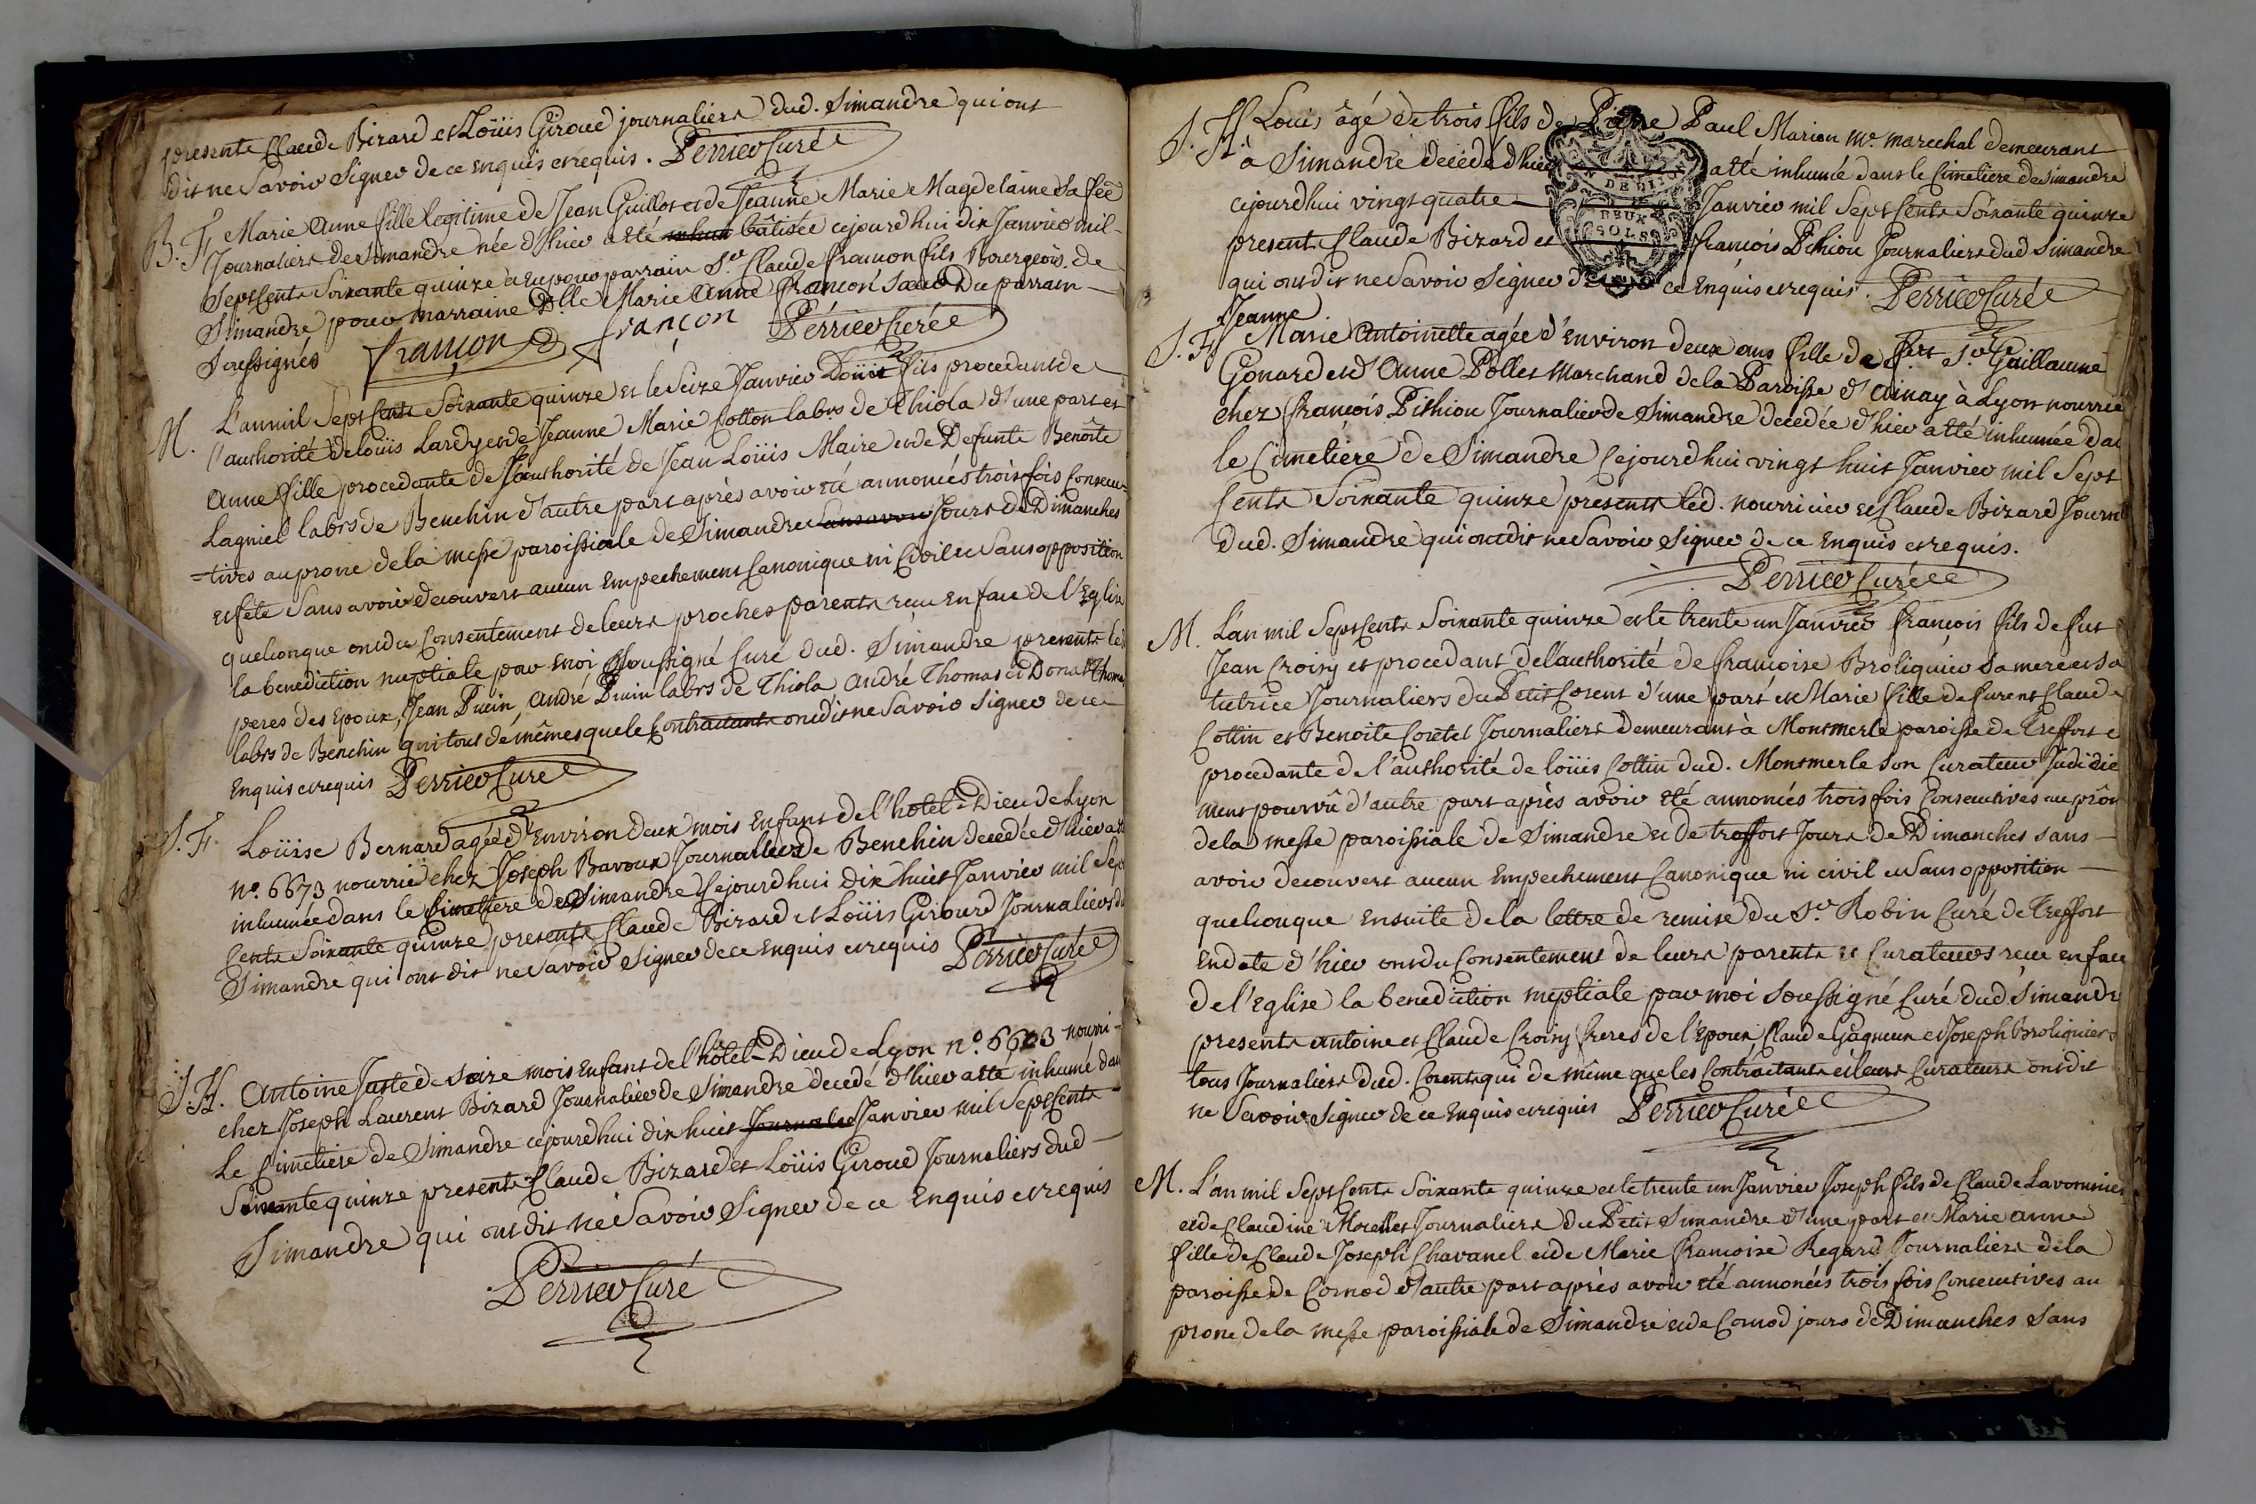 presents Claude Bizard et Loüis Giroud journaliers dud. Simandre qui ont
dit ne Savoir Signer de ce enquis et requis. Perrier Curé
B. F. Marie Anne fille legitime de Jean Guillot et de Jeanne Marie Magdelaine Sa fée
Journaliers de Simandre née d'hier a eté bâtisée cejourd'hui dix Janvier mil-
Sept Cents Soixante quinze a eu pour parrain Sr. Claude françon fils Bourgeois de
Simandre pour marraine Dlle Marie Anne françon Sœur Du parrain
Soussignés françon françon Perrier Curé
M. L'an mil Sept Cents Soixante quinze et le Seize Janvier Loüis fils procedant de
l'authorité de loüis Lardy et de Jeanne Marie Cotton labrs de Thiola d'une part et
Anne fille procedante de l'authorité de Jean Loüis Maire et de Defunte Benoîte
Lagniel labrs de Benchin d'autre part après avoir eté annoncés trois fois Consecu-
=tives au prone de la messe paroissiale de Simandre Sans avoir Jours de Dimanches
et fête Sans avoir decouvert aucun Empechement Canonique ni Civil et Sans opposition
quelconque ont du Consentement de leurs proches parents recu en face de l'Eglise
la benediction nuptiale par moi Soussigné Curé dud. Simandre presents les
peres des Epoux, Jean Puin, André Puin labrs de Thiola André Thomas et Donat Thomas
labrs de Benchin qui tous de mêmes que le Contractants ont dit ne Savoir Signer de ce
Enquis et requis Perrier Curé
S. F. Loüise Bernard agée d'Environ deux mois Enfant de l'hôtel-Dieu de Lyon
No. 6673 nourrie chez Joseph Bavoux Journalier de Benchin decedée d'hier a eté
inhumée dans le Cimetiere de Simandre Cejourd'hui dix huit Janvier mil Sept
Cents Soixante quinze presents Claude Bizard et Loüis Girourd Journaliers du
Simandre qui ont dit ne Savoir Signer de ce Enquis et requis Perrier Curé
S. H. Antoine Juste de Seize mois Enfant de l'hôtel-Dieu de Lyon No. 6603 nourri-
chez Joseph Laurent Bizard Journalier de Simandre decedé d'hier a eté inhumé dans
Le Cimetiere de Simandre cejourd'hui dix huit Journalier Janvier mil Sept Cents
Soixante quinze presents Claude Bizard et Loüis Giroud Journaliers dud
Simandre qui ont dit ne Savoir Signer de ce Enquis et requis
Perrier Curé
S. H. Louis âgé de trois fils de Pierre Paul Marion me. marechal demeurant
à Simandre decedé d'hier a eté inhumé dans le Cimetiere de Simandre
cejourd'hui vingt quatre Janvier mil Sept Cents Soixante quinze
presents Claude Bizard et françois Pithiou Journaliers dud Simandre
qui ont dit ne Savoir Signer de ce Enquis et requis. Perrier Curé
DEUX
SOLS
Jeanne
S. F. Marie Antoinette agée d'Environ deux ans fille de Sr. Guillaume
Gonard et d'Anne Pollet Marchand de la Paroisse d'Ainay à Lyon nourrie
chez françois Pithiou Journalier de Simandre decedée d'hier a eté inhumée dan
le Cimetiere de Simandre Cejourd'hui vingt huit Janvier mil Sept
Cents Soixante quinze presents led. nourricier et Claude Bizard Journ
dud. Simandre qui ont dit ne Savoir Signer de ce Enquis et requis.
Perrier Curé
M. L'an mil Sept Cents Soixante quinze et le trente un Janvier françois fils de fut
Jean Croisy et procedant de l'authorité de françoise Broliquier Sa mere et Sa
tutrice Journaliers du Petit Corent d'une part et Marie fille de furent Claude
Cottin et Benoite Coretet Journaliers demeurant à Montmerle paroisse de Treffort e
procedante de l'authorité de loüis Cottin dud. Montmerle Son Curateur Judicie
ment pourvû d'autre part après avoir eté annoncés trois fois Consecutives au prôn
de la messe paroissiale de Simandre et de treffort Jours de Dimanches sans
avoir decouvert aucun Empechement Canonique ni civil et Sans opposition
quelconque Ensuite de la lettre de remise du Sr. Robin Curé de Treffort
En date d'hier ont du Consentement de leurs parents et Curateurs recu en face
de l'Eglise la benediction nuptiale par moi Soussigné Curé dud. Simandre
presents Antoine et Claude Croisy freres de l'Epoux, Claude Gagneux et Joseph Broliquier
tous Journaliers dud. Corent qui de même que les Contractants et leurs Curateurs ont dit
ne Savoir Signer de ce Enquis et requis Perrier Curé
M. L'an mil Sept Cents Soixante quinze et le trente un Janvier Joseph fils de Claude Lavomnier
et de Claudine Morellet Journaliers du Petit Simandre d'une part et Marie Anne
fille de Claude Joseph Chavanel et de Marie françoise Regard Journaliers de la
paroisse de Cornod d'autre part après avoir eté annoncés trois fois Consecutives au
prone de la messe paroissiale de Simandre et de Cornod jours de Dimanches Sans